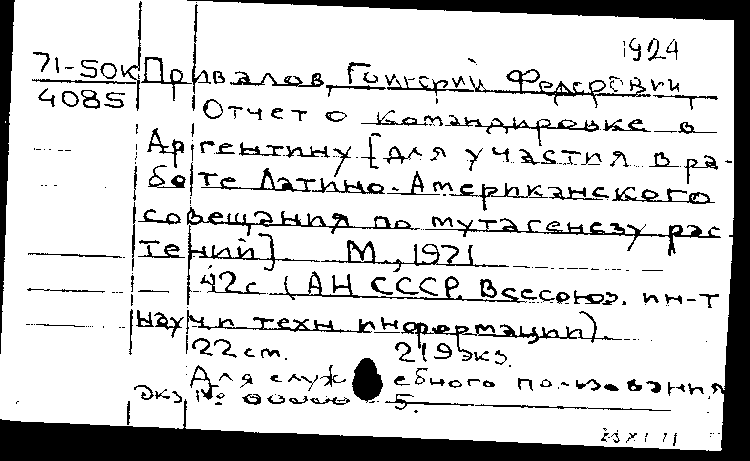 1924
71-50К Привалов, Григорий Федорович
4085 Отчет о командировке в
Аргентину [для участия в ра-
боте Латино-Американского
совещания по мутагенезу рас-
тений] М., 1971
42с (АН СССР. Всесоюз. ин-т
науч и техн информации).
22 см. 219 экз.
Для служебного пользования
Экз № 00000 5.